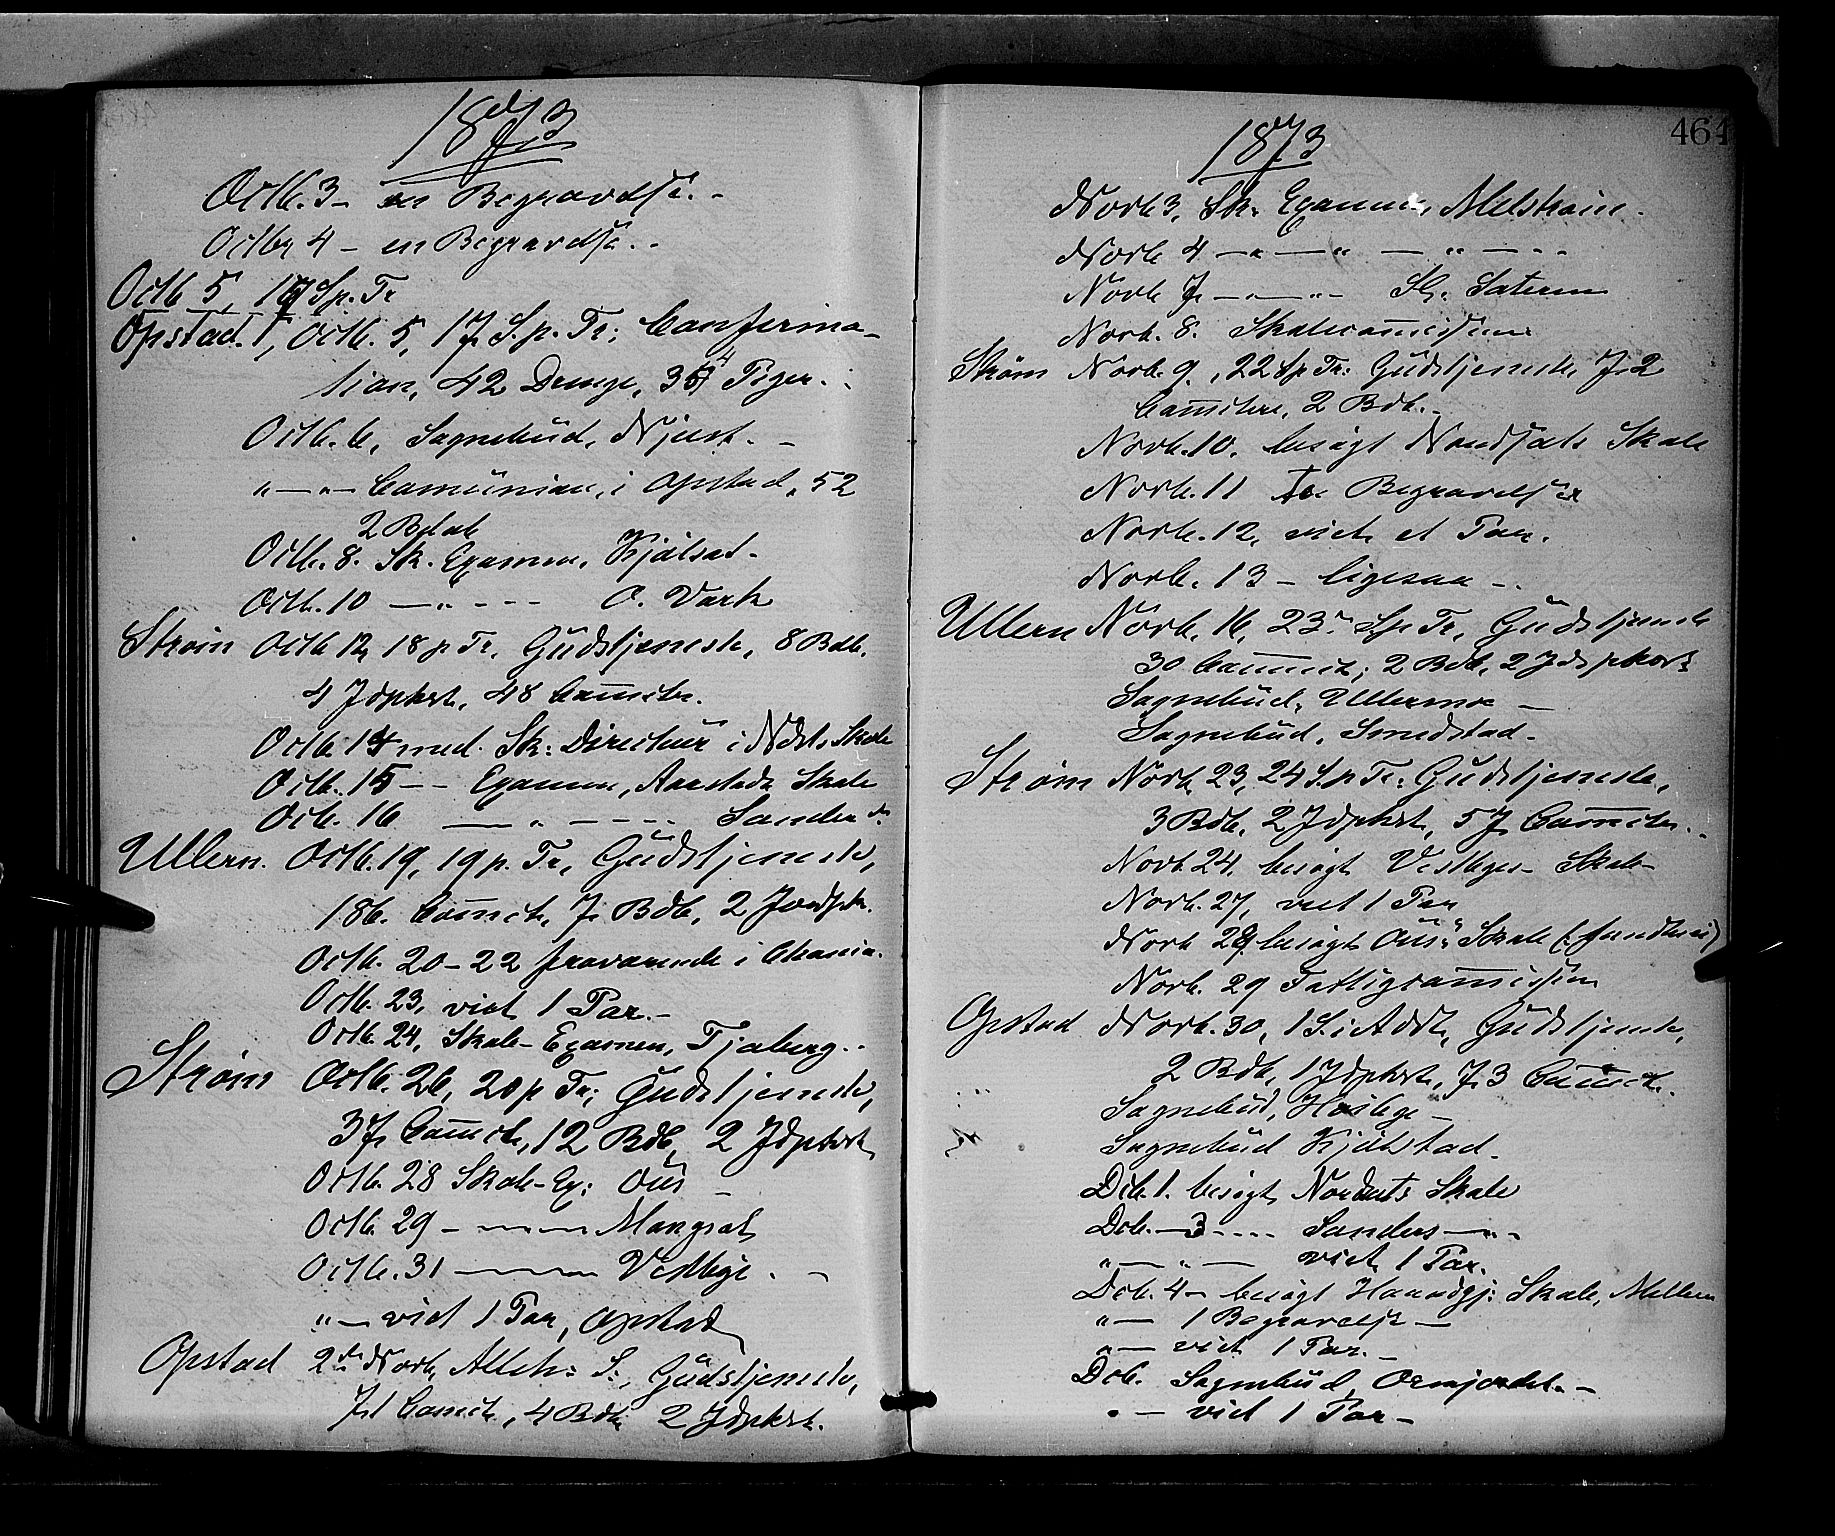 1873
Octb. 3 - en Begravelse. -
Octbr 4 - en Begravelse. -
Octb 5, 17 S. p. Tr
Opstad. Octb. 5, 17 S. p. Tr; Confirma-
tion, 42 Drenge, 34 Piger.
Octb. 6, Sognebud, Njust. -
" — " — Comunion, i Opstad, 52
2 Bdb
Octb. 8. Sk. Examen, Kjølsat -
Octb. 10 — " - - - O. Værk
Strøm Octb 12, 18 p Tr, Gudstjeneste, 8 Bdb.
4 Jdpkst, 48 Commcter.
Octb. 14 med Sk: Directeur i Skole
Octb. 15 - - Examen, Aarstads Skole
Octb. 16 — " - - - - Sander do
Ullern. Octb. 19, 19 p. Tr, Gudstjeneste,
186. Commct, 7 Bdb, 2
Octb. 20-22 fraværende i Chania.
Octb. 23, viet 1 Par. -
Octb. 24, Skole-Examen, Fjøberg. -
Strøm Octb. 26, 20 p Tr; Gudstjeneste,
37 Commct, 12 Bdb, 2 Jdpkst
Octb. 28 Skole-Ex: Ous -
Octb. 29 - — Mangset
Octb. 31 — Vestbye. -
" — viet 1 Par, Opstad
Opstad 2den Novb, Alleh: S:, Gudstjeneste,
71 Commct, 4 Bdb 2 Jdpkst.
1873
464
Novb 3, Sk: Examen, Melstrøm -
Novb 4 — " — " — " - - -
Novb 7 — " — " - Sl. Sæteren
Novb. 8. Skolecommission
Strøm Novb. 9, 22 S p Tr: Gudstjeneste, 72
Commctere, 2 Bdb. -
Novb. 10, besøgt Skole
Novb. 11 To Begravelser
Novb. 12, viet et Par.
Novb. 13 - ligesaa - .
Ullern Novb. 16, 23 S. p Tr, Gudstjeneste
30 Commct; 2 Bdb, 2 Jdpkst
Sognebud, Ullernmoe —
Sognebud, Smedstad -
Strøm Novb 23, 24 S. p Tr: Gudstjeneste,
3 Bdb, 2 Jdpkst, 57 Commcter. -
Novb. 24, besøgt Vestbye - Skole -
Novb. 27, viet 1 Par
Novb 29 besøgt Ous: Skole
Novb. 29 Fattigcommission
Opstad Novb. 30, 1 S. i Advt, Gudstjeneste,
2 Bdb, 1 Jdpkst, 73 Commct.
Sognebud, -
Sognebud Kjølstad -
Dcb. 1. besøgt Skole
Dcb. — 3 - - - Sanders — " -
" — " — viet 1 Par.
Dcb. 4 - besøgt Skole,
" — 1 Begravelse —
" — viet 1 Par. -
Dcb. Sognebud, -
" — viet 1 Par -